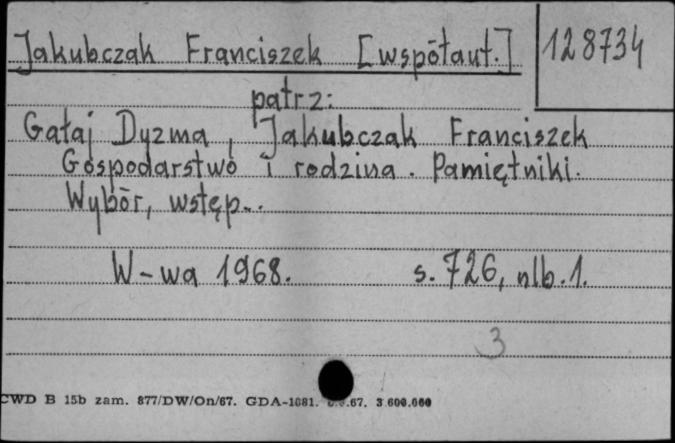 Jakubczak Franciszek [współaut.]
128734
patrz:
Gałaj Dyzma, Jakubczak Franciszek
Gospodarstwo i rodzina. Pamiętniki.
Wybór, wstęp..
W-wa 1968. s. 726, nlb. 1.
3
CWD B 15b zam. 877/DW/On/67. GDA-1081. .67. 3.600.000